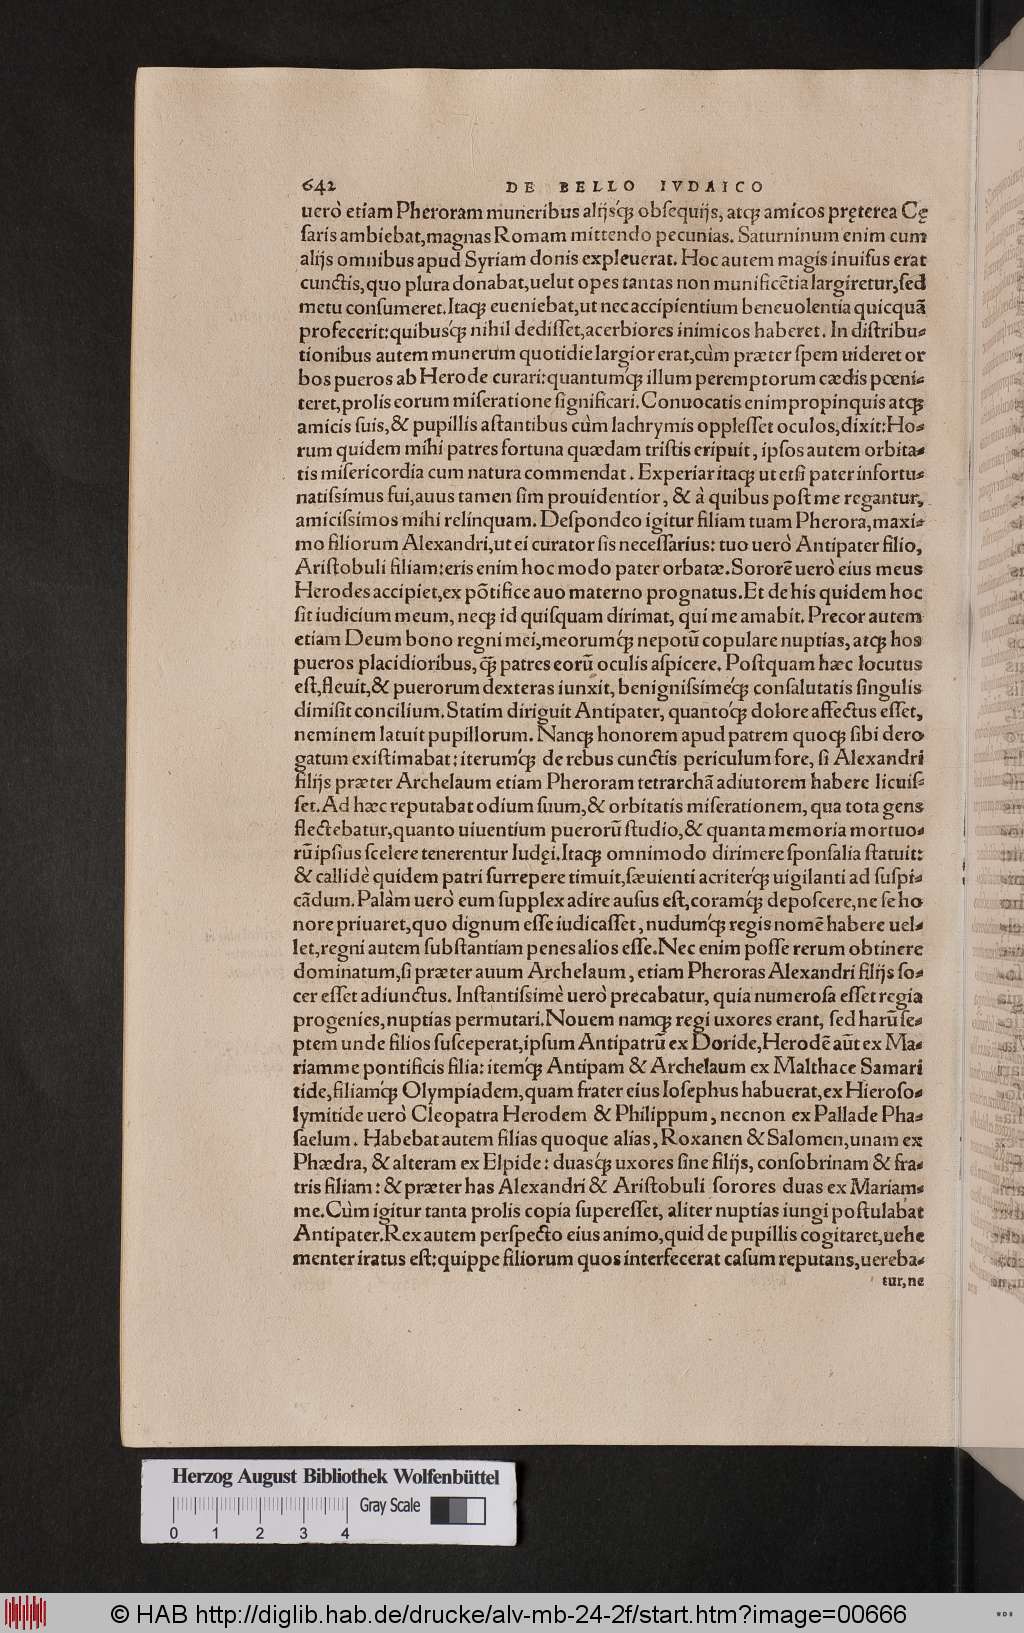 642 DE BELLO IVDAICO
uerò etiam Pheroram muneribus alijsq́ꝫ obſequijs, atqꝫ amicos pręterea Cę
ſaris ambiebat,magnas Romam mittendo pecunias. Saturninum enim cum
alijs omnibus apud Syriam donis expleuerat. Hoc autem magis inuiſus erat
cunctis,quo plura donabat,uelut opes tantas non munificẽtia largiretur,ſed
metu conſumeret.Itaqꝫ eueniebat,ut nec accipientium beneuolentia quicquã
profecerit:quibusq́ꝫ nihil dediſſet,acerbiores inimicos haberet. In diſtribu⸗
tionibus autem munerum quotidie largior erat,cùm præter ſpem uideret or
bos pueros ab Herode curari:quantumq́ꝫ illum peremptorum cædis pœni⸗
teret,prolis eorum miſeratione ſignificari.Conuocatis enim propinquis atqꝫ
amicis ſuis,& pupillis aſtantibus cùm lachrymis oppleſſet oculos,dixit:Ho⸗
rum quidem mihi patres fortuna quædam triſtis eripuit, ipſos autem orbita⸗
tis miſericordia cum natura commendat. Experiar itaqꝫ ut etſi pater infortu⸗
natiſsimus fui,auus tamen ſim prouidentior, & à quibus poſt me regantur,
amiciſsimos mihi relinquam. Deſpondeo igitur filiam tuam Pherora,maxi⸗
mo filiorum Alexandri,ut ei curator ſis neceſſarius: tuo uerò Antipater filio,
Ariſtobuli filiam:eris enim hoc modo pater orbatæ.Sororẽ uerò eius meus
Herodes accipiet,ex põtifice auo materno prognatus.Et de his quidem hoc
ſit iudicium meum, neqꝫ id quiſquam dirimat, qui me amabit. Precor autem
etiam Deum bono regni mei,meorumq́ꝫ nepotũ copulare nuptias, atqꝫ hos
pueros placidioribus, q̃ꝫ patres eorũ oculis aſpicere. Poſtquam hæc locutus
eſt,fleuit,& puerorum dexteras iunxit, benigniſsimeq́ꝫ conſalutatis ſingulis
dimiſit concilium.Statim diriguit Antipater, quantoq́ꝫ dolore affectus eſſet,
neminem latuit pupillorum. Nanqꝫ honorem apud patrem quoqꝫ ſibi dero
gatum exiſtimabat: iterumq́ꝫ de rebus cunctis periculum fore, ſi Alexandri
filijs præter Archelaum etiam Pheroram tetrarchã adiutorem habere licuiſ⸗
ſet.Ad hæc reputabat odium ſuum,& orbitatis miſerationem, qua tota gens
flectebatur,quanto uiuentium puerorũ ſtudio,& quanta memoria mortuo⸗
rũ ipſius ſcelere tenerentur Iudęi.Itaqꝫ omnimodo dirimere ſponſalia ſtatuit:
& callidè quidem patri ſurrepere timuit,ſæuienti acriterq́ꝫ uigilanti ad ſuſpi⸗
cãdum.Palàm uerò eum ſupplex adire auſus eſt,coramq́ꝫ depoſcere,ne ſe ho
nore priuaret,quo dignum eſſe iudicaſſet, nudumq́ꝫ regis nomẽ habere uel⸗
let,regni autem ſubſtantiam penes alios eſſe.Nec enim poſſe rerum obtinere
dominatum,ſi præter auum Archelaum, etiam Pheroras Alexandri filijs ſo⸗
cer eſſet adiunctus. Inſtantiſsimè uerò precabatur, quia numeroſa eſſet regia
progenies,nuptias permutari.Nouem namqꝫ regi uxores erant, ſed harũ ſe⸗
ptem unde filios ſuſceperat,ipſum Antipatrũ ex Doride,Herodẽ aũt ex Ma⸗
riamme pontificis filia: itemq́ꝫ Antipam & Archelaum ex Malthace Samari
tide,filiamq́ꝫ Olympiadem,quam frater eius Ioſephus habuerat,ex Hieroſo⸗
lymitide uerò Cleopatra Herodem & Philippum, necnon ex Pallade Pha⸗
ſaelum. Habebat autem filias quoque alias, Roxanen & Salomen,unam ex
Phædra, & alteram ex Elpide: duasq́ꝫ uxores ſine filijs, conſobrinam & fra⸗
tris filiam: & præter has Alexandri & Ariſtobuli ſorores duas ex Mariam⸗
me.Cùm igitur tanta prolis copia ſupereſſet, aliter nuptias iungi poſtulabat
Antipater.Rex autem perſpecto eius animo,quid de pupillis cogitaret,uehe
menter iratus eſt:quippe filiorum quos interfecerat caſum reputans,uereba⸗
tur,ne
Herzog August Bibliothek Wolfenbüttel
Gray Scale
0 1 2 3 4
© HAB http://diglib.hab.de/drucke/alv-mb-24-2f/start.htm?image=00666